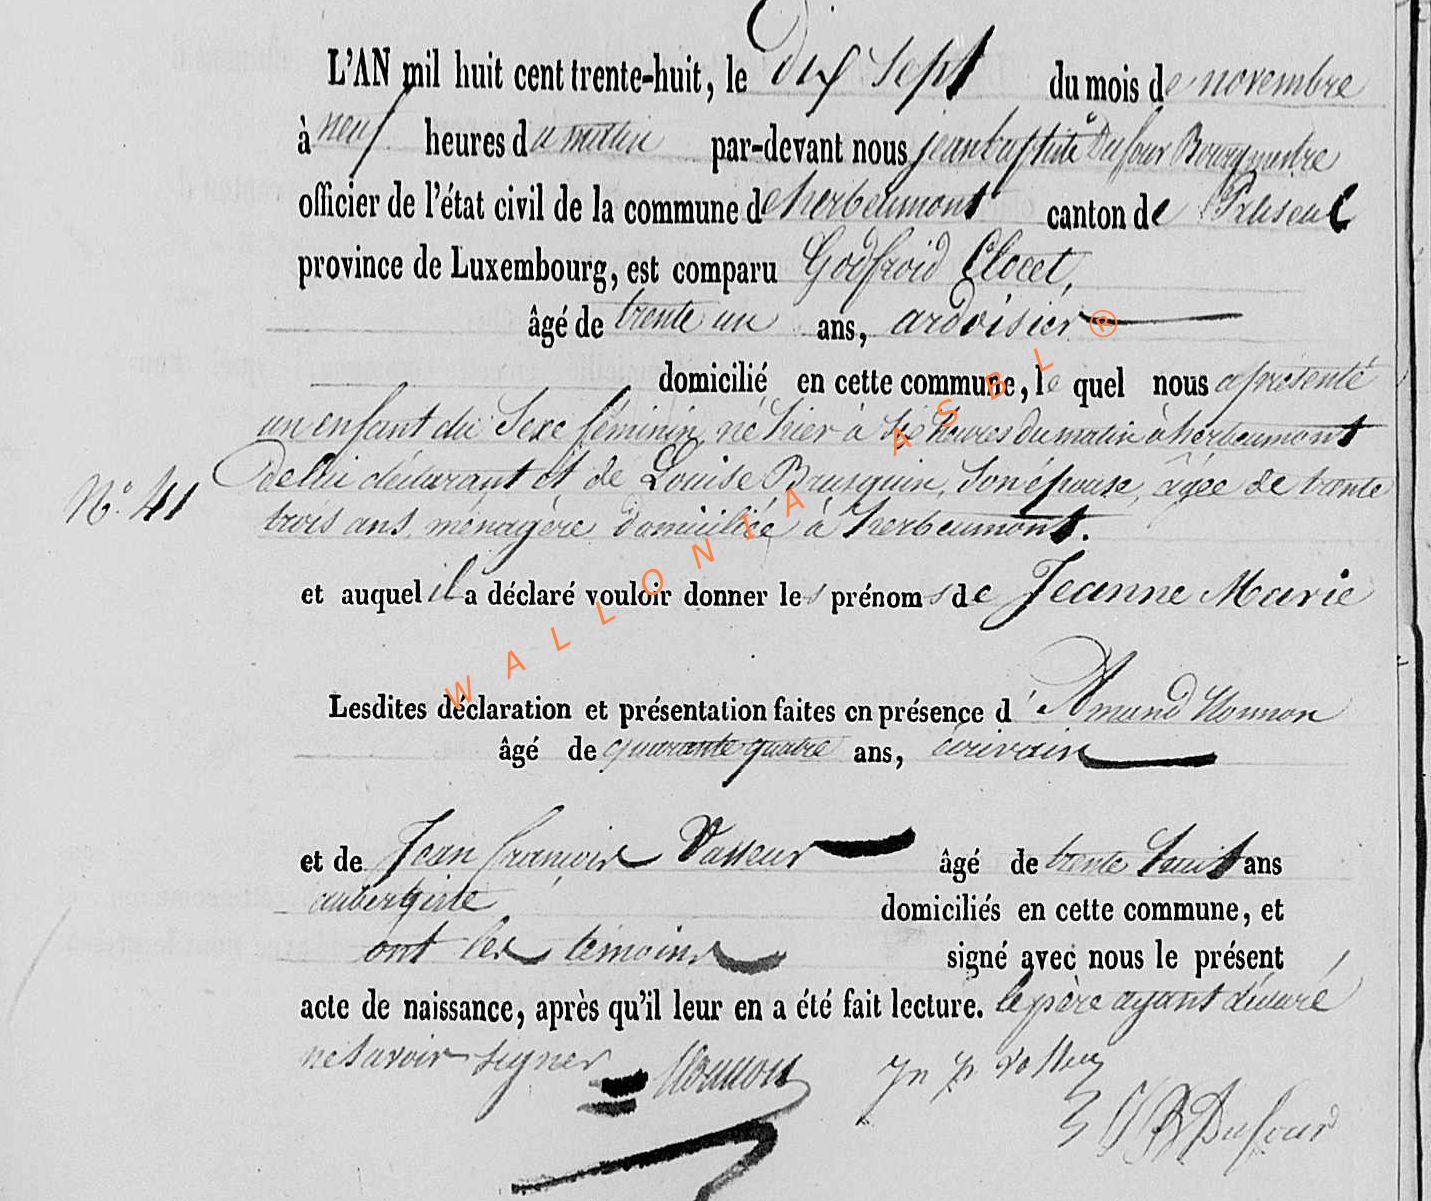 L'AN mil huit cent trente-huit, le dix sept du mois de novembre
à neuf heures du matin par-devant nous jean baptiste Dufour Bourgmestre
officier de l'état civil de la commune de herbeumont canton de Paliseul
province de Luxembourg, est comparu Godfroid Clocet,
âgé de trente un ans, ardoisier
domicilié en cette commune, le quel nous a présenté
un enfant du Sexe féminin, né hier à six heures du matin à herbeumont
de lui déclarant et de Louise Brusquin, son épouse, âgée de trente
N° 41
trois ans, ménagère domiciliée à herbeumont.
et auquel il a déclaré vouloir donner les prénoms de Jeanne Marie
Lesdites déclaration et présentation faites en présence d' Amand
âgé de quarante quatre ans, écrivain
et de Jean françois Vasseur âgé de trente huit ans
aubergiste domiciliés en cette commune, et
ont les témoins signé avec nous le présent
acte de naissance, après qu'il leur en a été fait lecture. le père ayant déclaré
ne savoir signer
JB Dufour
WALLONIA ASBL ®